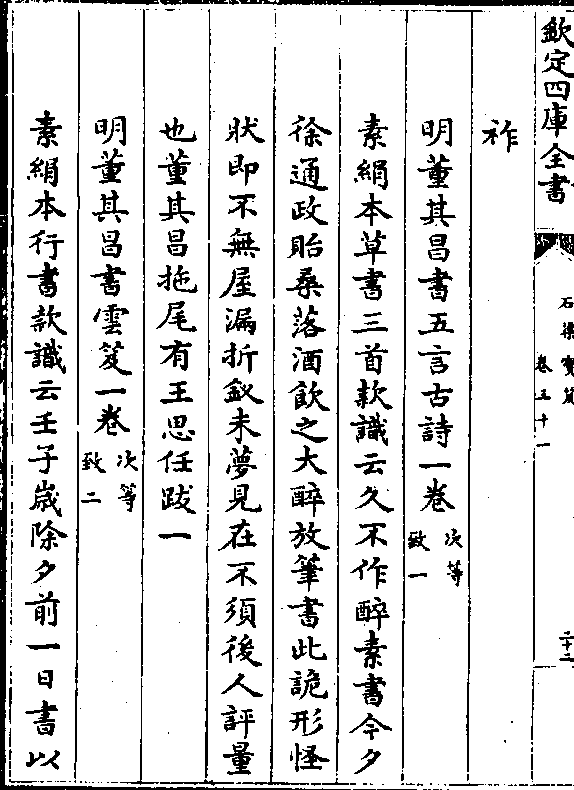 欽定四庫全書
石渠寶笈
卷五十一
二十二
祚
明董其昌書五言古詩一卷 次等 致一
素絹本草書三首款識云久不作醉素書今夕
徐通政貽桑落酒飲之大醉放筆書此詭形怪
狀即不無屋漏折釵未夢見在不須後人評量
也董其昌拖尾有王思任跋一
明董其昌書雲笈一卷 次等 致二
素絹本行書款識云壬子歲除夕前一日書以